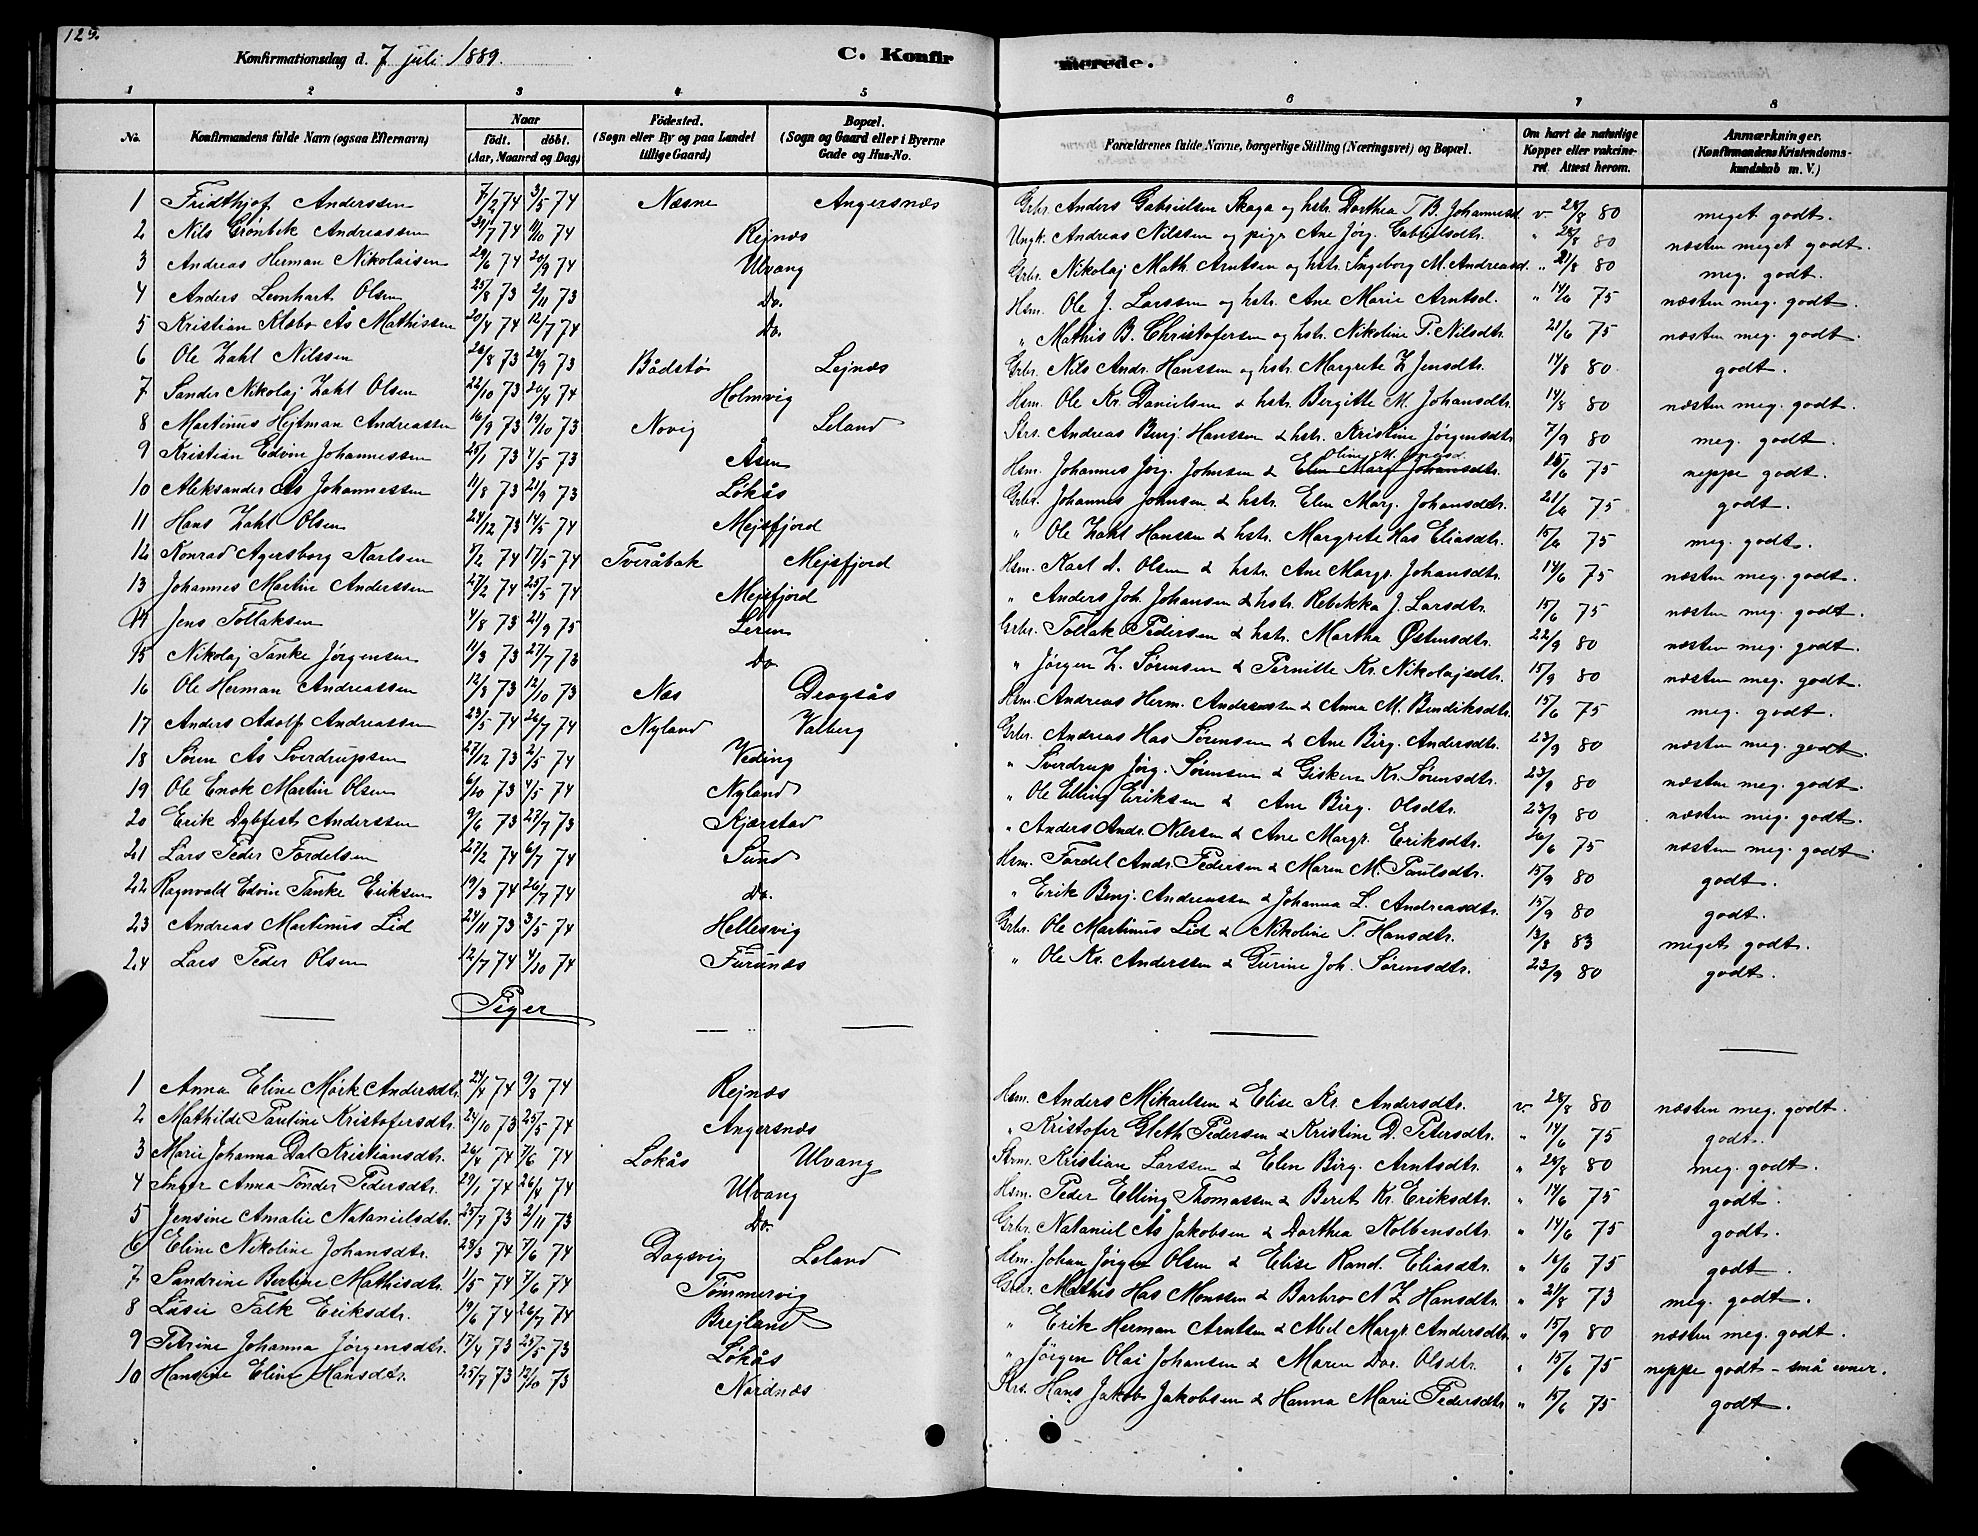 125
Konfirmationsdag d. 7 juli 1889. C. Konfirmerede.
1 2 3 4 5 6 7 8
No. Konfirmandens fulde Navn (ogsaa Efternavn) Naar födt. döbt. (Aar, Maaned og Dag) Födested. (Sogn eller By og paa Landet tillige Gaard) Bopæl. (Sogn og Gaard eller i Byerne Gade og Hus-No. Forældrenes fulde Navne, borgerlige Stilling (Næringsvei) og Bopæl. Om havt de naturlige Kopper eller vakcineret Attest herom. Anmærkninger. (Konfirmandens Kristendomskundskab m. V.)
1 Fridthjof Anderssen 7/2 74 3/5 74 Næsne Angersnæs Grbr. Anders Gabrielsen Skaga og hstr. Dorthea T B. Johannesd. v. 28/8 80 meget godt.
2 Nils Grønbek Andreassen 30/7 74 11/10 74 Rejnæs Ungk. Andreas Nilssen og pige Ane Jørg. Gabrielsdtr. " 28/8 80 næsten meget godt.
3 Andreas Herman Nikolaisen 29/6 74 20/9 74 Ulvang Grbr. Nikolaj Math. Arntsen og hstr. Ingeborg M. Andreasd. " 21/8 80 meg. godt.
4 Anders Leonhart Olsen 25/8 73 2/11 73 Do. Hsm. Ole J. Larssen og hstr. Ane Marie Arntsd. " 14/6 75 næsten meg. godt.
5 Kristian Klæbo Ås Mathissen 20/4 74 12/7 74 Do. " Mathis B. Christofersen og hstr. Nikoline P. Nilsdtr. 21/6 75 næsten meg. godt.
6 Ole Zahl Nilssen 26/8 73 28/9 73 Bådstø Lejnæs Grbr. Nils Andr. Hanssen og hstr. Margrete Z Jensdtr. 14/8 80 godt.
7 Sander Nikolaj Zahl Olsen 22/10 73 26/4 74 Holmvig Hsm. Ole Kr. Danielsen & hstr. Bergitte M. Johansdtr. 14/8 80 næsten meg. godt.
8 Martinus Hejtman Andreassen 16/9 73 19/10 73 Novig Leland Strs. Andreas Benj. Hanssen & hstr. Kristine Jørgensdtr. 7/9 80 meg. godt.
9 Kristian Edvin Johannessen 25/1 73 4/5 73 Åsen Hsm. Johannes Jörg. Johnsen & Elen Marg Johansdtr. 15/6 75 neppe godt.
10 Aleksander Ås Johannessen 11/8 73 21/9 73 Løkås Grbr. Johannes Johnsen & hstr. Elen Marg. Johansdtr. 21/6 75 godt.
11 Hans Zahl Olsen 24/12 73 14/5 74 Mejsfjord " Ole Zahl Hanssen & hstr. Margrete Has Eliasdtr. 15/6 75 meg. godt.
12 Konrad Agersborg Karlsen 8/2 74 17/5 74 Tveråbak Mejsfjord Hsm. Karl A. Olsen & hstr. Ane Margr. Johansdtr. 14/6 75 næsten meg. godt.
13 Johannes Martin Anderssen 27/2 74 25/5 74 Mejsfjord " Anders Joh. Johansen & hstr. Rebekka J. Larsdtr. 15/6 75 næsten meg. godt.
14 Jens Tollaksen 4/8 73 21/9 75 Leren Grbr. Tollak Pedersen & hstr. Martha Østensdtr. 22/9 80 næsten meg. godt.
15 Nikolaj Tanke Jørgensen 11/3 73 27/7 73 Do. " Jørgen Z. Sørensen & Pernille Kr. Nikolajsdtr. 15/9 80 næsten meg. godt.
16 Ole Herman Andreassen 12/3 73 12/10 73 Næs Dragsås Hsm. Andreas Herm. Andreassen & Anna M. Bendiksdtr. 15/6 75 meg. godt.
17 Anders Adolf Andreassen 23/5 74 26/7 74 Nyland Valberg Grbr. Andreas Has Sørensen & Ane Birg. Andersdtr. 23/9 80 næsten meg. godt.
18 Søren Ås Sverdrupsen 27/12 73 2/5 74 Veding " Sverdrup Jörg. Sørensen & Gisken Kr. Sørensdtr. 23/9 80 næsten meg. godt.
19 Ole Enok Martin Olsen 6/10 73 4/5 74 Nyland " Ole Elling Eriksen & Ane Birg. Olsdtr. 23/9 80 næsten meg. godt.
20 Erik Dybfest Anderssen 9/6 73 27/7 73 Kjærstad " Anders Andr. Nilssen & Ane Margr. Eriksdtr. 26/6 75 næsten meg. godt.
21 Lars Peder Tordelsen 27/2 74 6/7 74 Sund Hsm. Tordel Andr. Pedersen & Maren M. Paulsdtr. 15/9 80 godt.
22 Ragnvald Edvin Tanke Eriksen 19/3 74 26/7 74 do. " Erik Benj. Andreassen & Johanna L. Andreasdtr. 15/9 80 godt.
23 Andreas Martinus Lid 24/11 73 3/5 74 Hellesvig Grbr. Ole Martinus Lid & Nikoline T. Hansdtr. 13/8 83 meget godt.
24 Lars Peder Olsen 12/7 74 4/10 74 Furunæs " Ole Kr. Anderssen & Gurine Joh. Sørensdtr. 23/9 80 godt.
Piger
1 Anna Eline Mörk Andersdtr. 24/4 74 9/8 74 Rejnæs Hsm. Anders Mikaelsen & Elise Kr. Andersdtr. v. 28/8 80 næsten meg. godt.
2 Mathilde Pauline Kristofersdtr. 24/10 73 25/5 74 Angersnæs " Kristofer Gleth Pedersen & Kristine D. Petersdtr. " 14/6 75 godt.
3 Marie Johanna Dal Kristiansdtr. 26/4 74 7/6 74 Løkås Ulvang Strm. Kristian Larssen & Elen Birg. Arntsdtr. " 28/8 80 meg. godt.
4 Inger Anna Tønder Pedersdtr. 29/1 74 26/4 74 Ulvang Hsm. Peder Elling Thomassen & Beret Kr. Eriksdtr. " 14/6 75 godt.
5 Jensine Amalie Natanielsdtr. 25/7 73 2/11 73 Do. Grbr. Nataniel Ås Jakobsen & Dorthea Kolbensdtr. " 14/6 75 godt.
6 Eline Nikoline Johansdtr. 28/3 74 7/6 74 Dagsvig Leland Hsm. Johan Jörgen Olsen & Elise Rand. Eliasdtr. " 16/6 75 godt.
7 Sandrine Bertine Mathisdtr. 1/5 74 7/6 74 Tömmervig Grbr. Mathis Has Monssen & Barbro N Z Hansdtr. " 21/8 73 meg. godt.
8 Lusie Falk Eriksdtr. 19/6 74 26/7 74 Brejland " Erik Herman Arntsen & Abel Margr. Andersdtr. " 15/9 80 næsten meg. godt.
9 Petrine Johanna Jørgensdtr. 17/4 73 25/5 73 Løkås " Jörgen Olai Johansen & Maren Dor. Olsdtr. " 15/6 75 neppe godt - små evner.
10 Hansine Eline Hansdtr. 25/7 73 12/10 73 Nordnæs Strs. Hans Jakob Jakobsen & Hanna Marie Pedersdtr. " 15/6 75 godt.